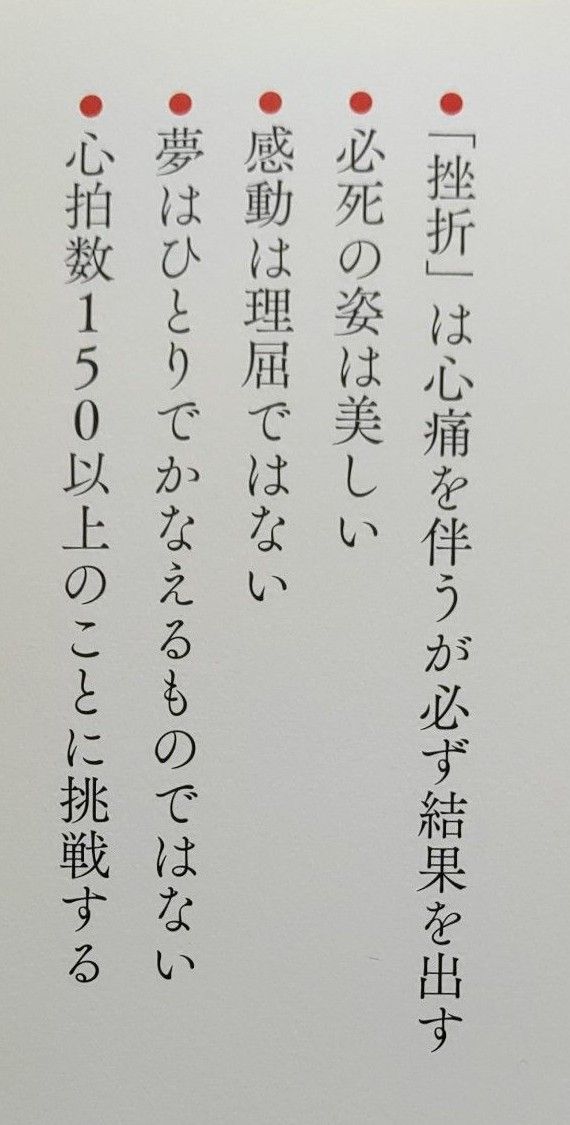 ●「挫折」は心痛を伴うが必ず結果を出す
●必死の姿は美しい
●感動は理屈ではない
●夢はひとりでかなえるものではない
●心拍数150以上のことに挑戦する